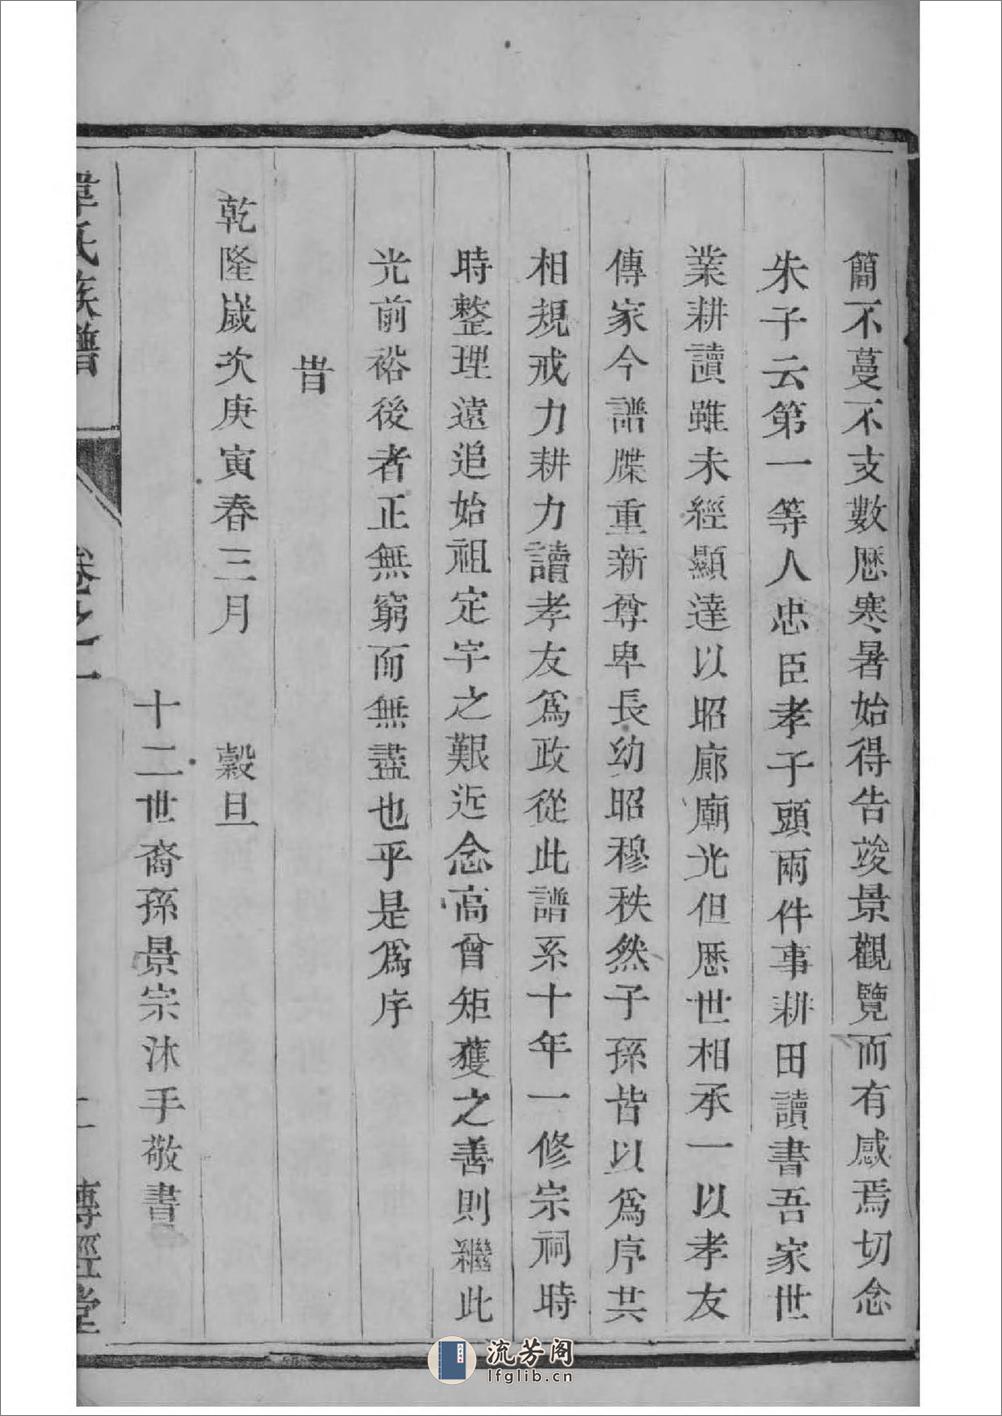 簡不蔓不支數厯寒暑始得告竣景觀覽而有感焉切念
朱子云第一等人忠臣孝子頭兩件事耕田讀書吾家世
業耕讀雖未經顯達以昭廊廟光但厯世相承一以孝友
傳家今譜牒重新尊卑長幼昭穆秩然子孫皆以爲序共
相規戒力耕力讀孝友爲政從此譜系十年一修宗祠時
時整理遠追始祖定宇之艱近念高曾矩矱之善則繼此
光前裕後者正無窮而無盡也乎是爲序
旹
乾隆嵗次庚寅春三月 榖旦
十二世裔孫景宗沐手敬書
韋氏族譜 卷之一 傳經堂
流芳阁
lfglib.cn